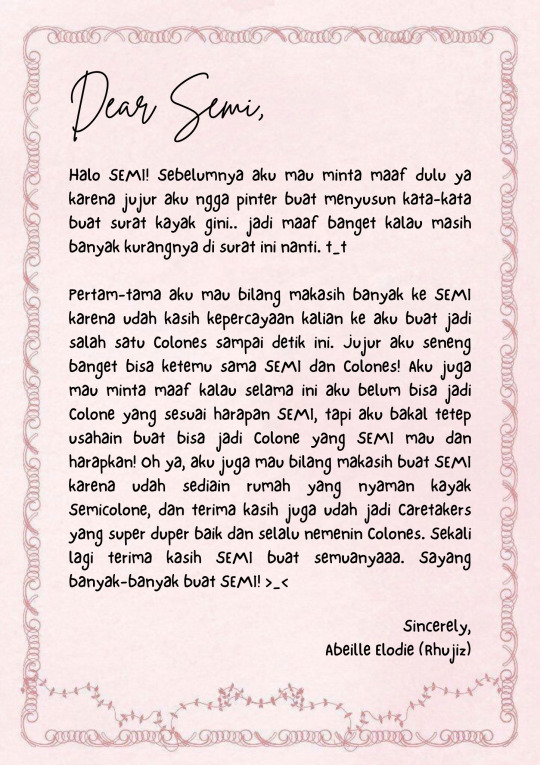 Dear Semi,
Halo SEMI! Sebelumnya aku mau minta maaf dulu ya
karena jujur aku ngga pinter buat menyusun kata-kata
buat surat kayak gini.. jadi maaf banget kalau masih
banyak kurangnya di surat ini nanti. t_t
Pertam-tama aku mau bilang makasih banyak ke SEMI
karena udah kasih kepercayaan kalian ke aku buat jadi
salah satu Colones sampai detik ini. Jujur aku seneng
banget bisa ketemu sama SEMI dan Colones! Aku juga
mau minta maaf kalau selama ini aku belum bisa jadi
Colone yang sesuai harapan SEMI, tapi aku bakal tetep
usahain buat bisa jadi Colone yang SEMI mau dan
harapkan! Oh ya, aku juga mau bilang makasih buat SEMI
karena udah sediain rumah yang nyaman kayak
Semicolone, dan terima kasih juga udah jadi Caretakers
yang super duper baik dan selalu nemenin Colones. Sekali
lagi terima kasih SEMI buat semuanyaaa. Sayang
banyak-banyak buat SEMI! >_<
Sincerely,
Abeille Elodie (Rhujiz)